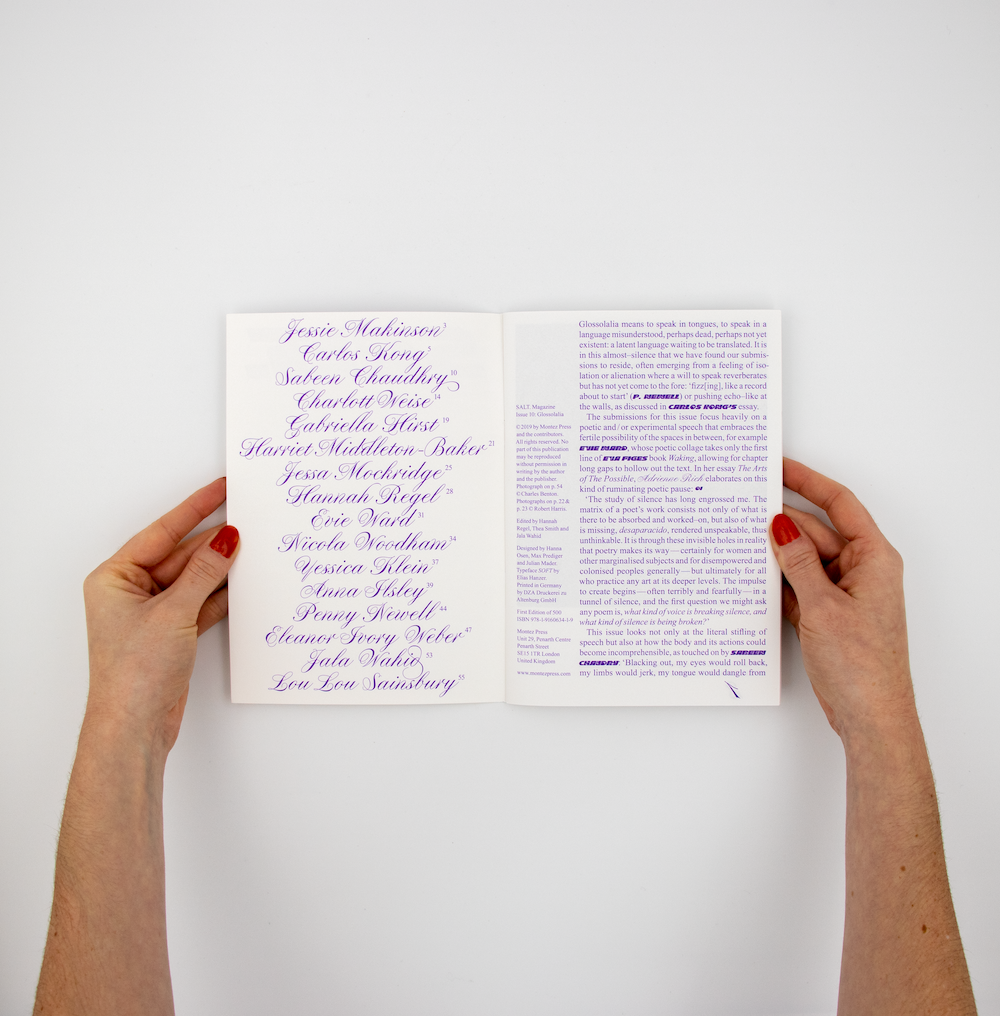 Jessie Makinson 3
Carlos Kong 5
Sabeen Chaudhry 10
Charlott Weise 14
Gabriella Hirst 19
Harriet Middleton-Baker 21
Jessa Mockridge 25
Hannah Regel 28
Evie Ward 31
Nicola Woodham 34
Yessica Klein 37
Anna Ilsley 39
Penny Newell 44
Eleanor Ivory Weber 47
Jala Wahid 53
Lou Lou Sainsbury 55
SALT. Magazine
Issue 10: Glossolalia
©2019 by Montez Press
and the contributors.
All rights reserved. No
part of this publication
may be reproduced
without permission in
writing by the author
and the publisher.
Photograph on p. 54
© Charles Benton
Photographs on p. 22 &
p. 23 © Robert Harris
Edited by Hannah
Regel, Thea Smith and
Jala Wahid
Designed by Hanna
Osen, Max Prediger
and Julian Mader
Typeface SOFT by
Elias Hanzer.
Printed in Germany
by DZA Druckerei zu
Altenburg GmbH
First Edition of 500
ISBN 978-1-9160634-1-9
Montez Press
Unit 29, Penarth Centre
Penarth Street
SE15 1TR London
United Kingdom
www.montezpress.com
Glossolalia means to speak in tongues, to speak in a
language misunderstood, perhaps dead, perhaps not yet
existent: a latent language waiting to be translated. It is
in this almost–silence that we have found our submis-
sions to reside, often emerging from a feeling of iso-
lation or alienation where a will to speak reverberates
but has not yet come to the fore: ‘fizz[ing], like a record
about to start’ (P. NEWELL) or pushing echo–like at
the walls, as discussed in CARLOS KONG'S essay.
The submissions for this issue focus heavily on a
poetic and / or experimental speech that embraces the
fertile possibility of the spaces in between, for example
EVIE WARD, whose poetic collage takes only the first
line of EVA FIGES book Waking, allowing for chapter
long gaps to hollow out the text. In her essay The Arts
of The Possible, Adrienne Rich elaborates on this
kind of ruminating poetic pause:
‘The study of silence has long engrossed me. The
matrix of a poet’s work consists not only of what is
there to be absorbed and worked–on, but also of what
is missing, desaparacido, rendered unspeakable, thus
unthinkable. It is through these invisible holes in reality
that poetry makes its way — certainly for women and
other marginalised subjects and for disempowered and
colonised peoples generally — but ultimately for all
who practice any art at its deeper levels. The impulse
to create begins — often terribly and fearfully — in a
tunnel of silence, and the first question we might ask
any poem is, what kind of voice is breaking silence, and
what kind of silence is being broken?’
This issue looks not only at the literal stifling of
speech but also at how the body and its actions could
become incomprehensible, as touched on by SABEEN
CHAUDRY. ‘Blacking out, my eyes would roll back,
my limbs would jerk, my tongue would dangle from